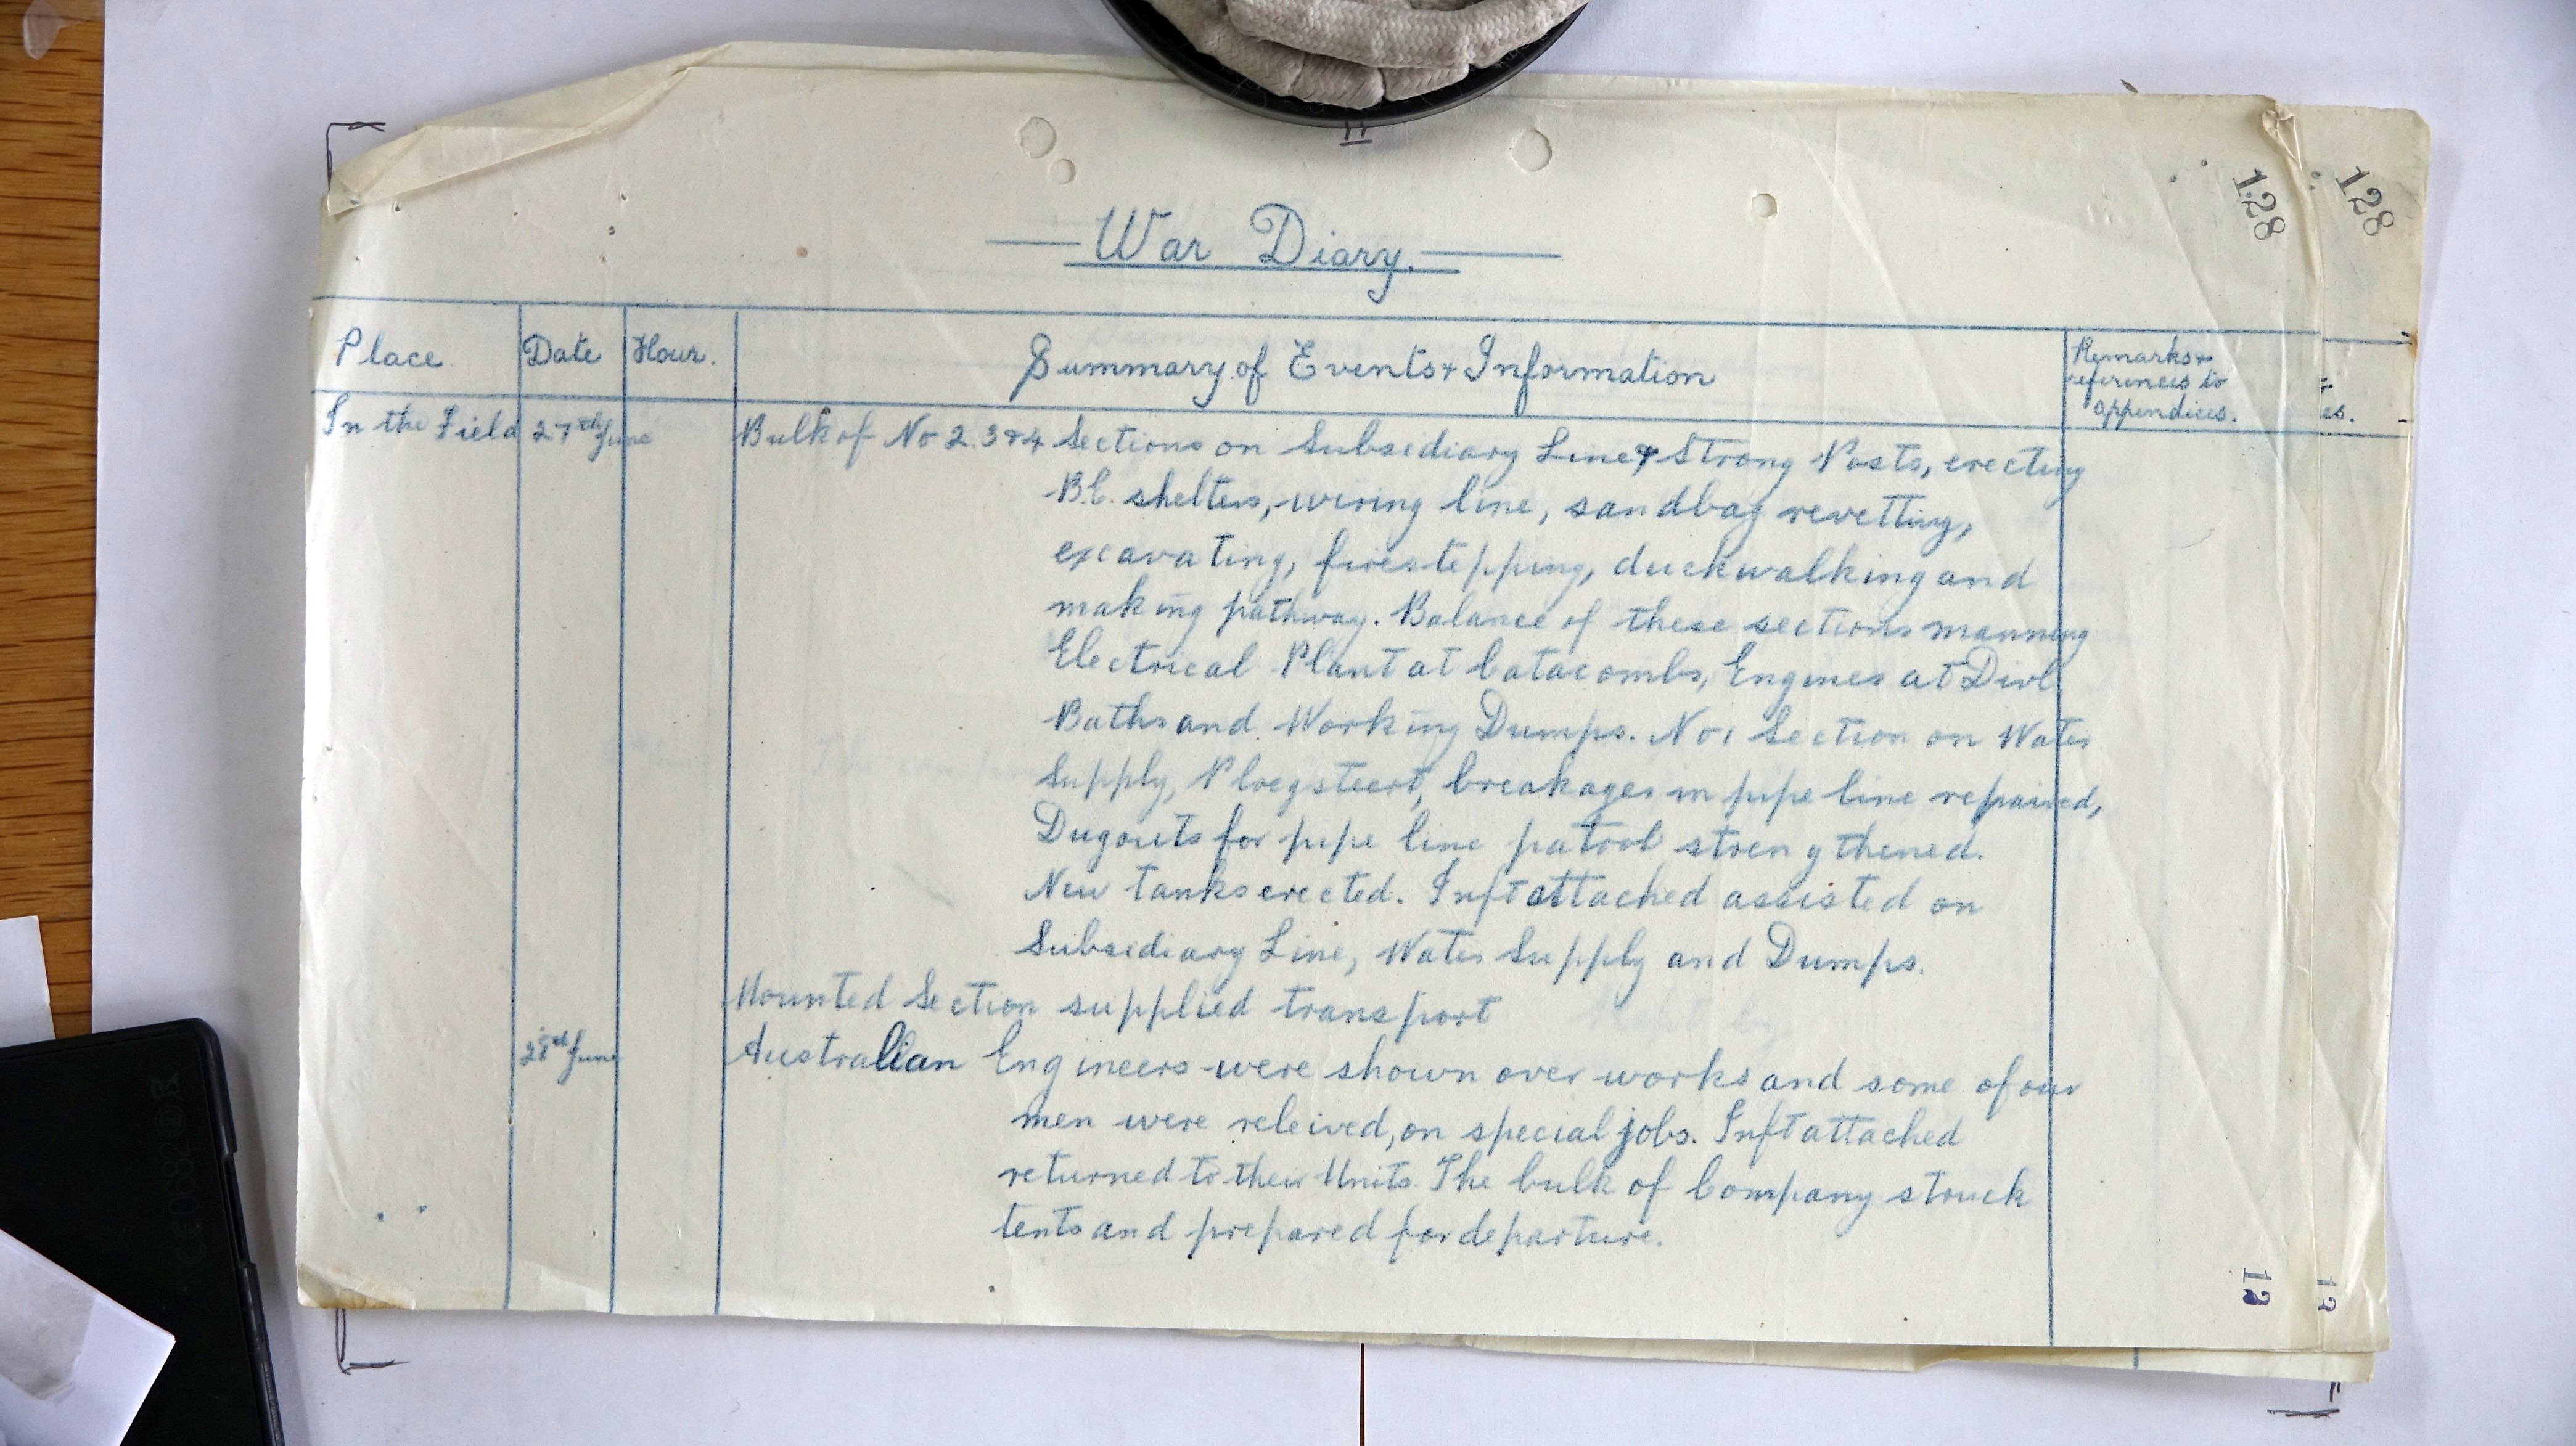 128
128
War Diary.
Place Date Hour. Summary of Events & Information Remarks & references to appendices.
es.
In the Field 27th June Bulk of No 2. 3 & 4 Sections on Subsidiary Line & Strong Posts, erecting
B.C. shelters, wiring line, sandbag revetting,
excavating, firestepping, duckwalking and
making pathway. Balance of these sections manning
Electrical Plant at Catacombs, Engines at Divl
Baths and Working Dumps. No 1 Section on Water
Supply, Ploegsteert, breakages in pipe line repaired,
Dugouts for pipe line patrol strengthened.
New tanks erected. Inft attached assisted on
Subsidiary Line, Water Supply and Dumps.
Mounted Section supplied transport
28th June Australian Engineers were shown over works and some of our
men were releived, on special jobs. Inft attached
returned to their Units. The bulk of Company struck
tents and prepared for departure.
13
13